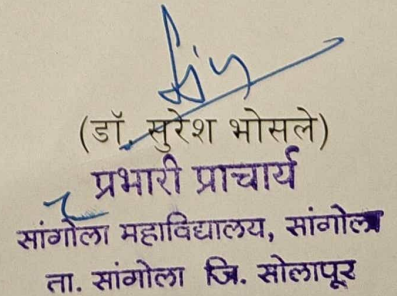 (डॉ. सुरेश भोसले)
प्रभारी प्राचार्य
सांगोला महाविद्यालय, सांगोला
ता. सांगोला जि. सोलापूर